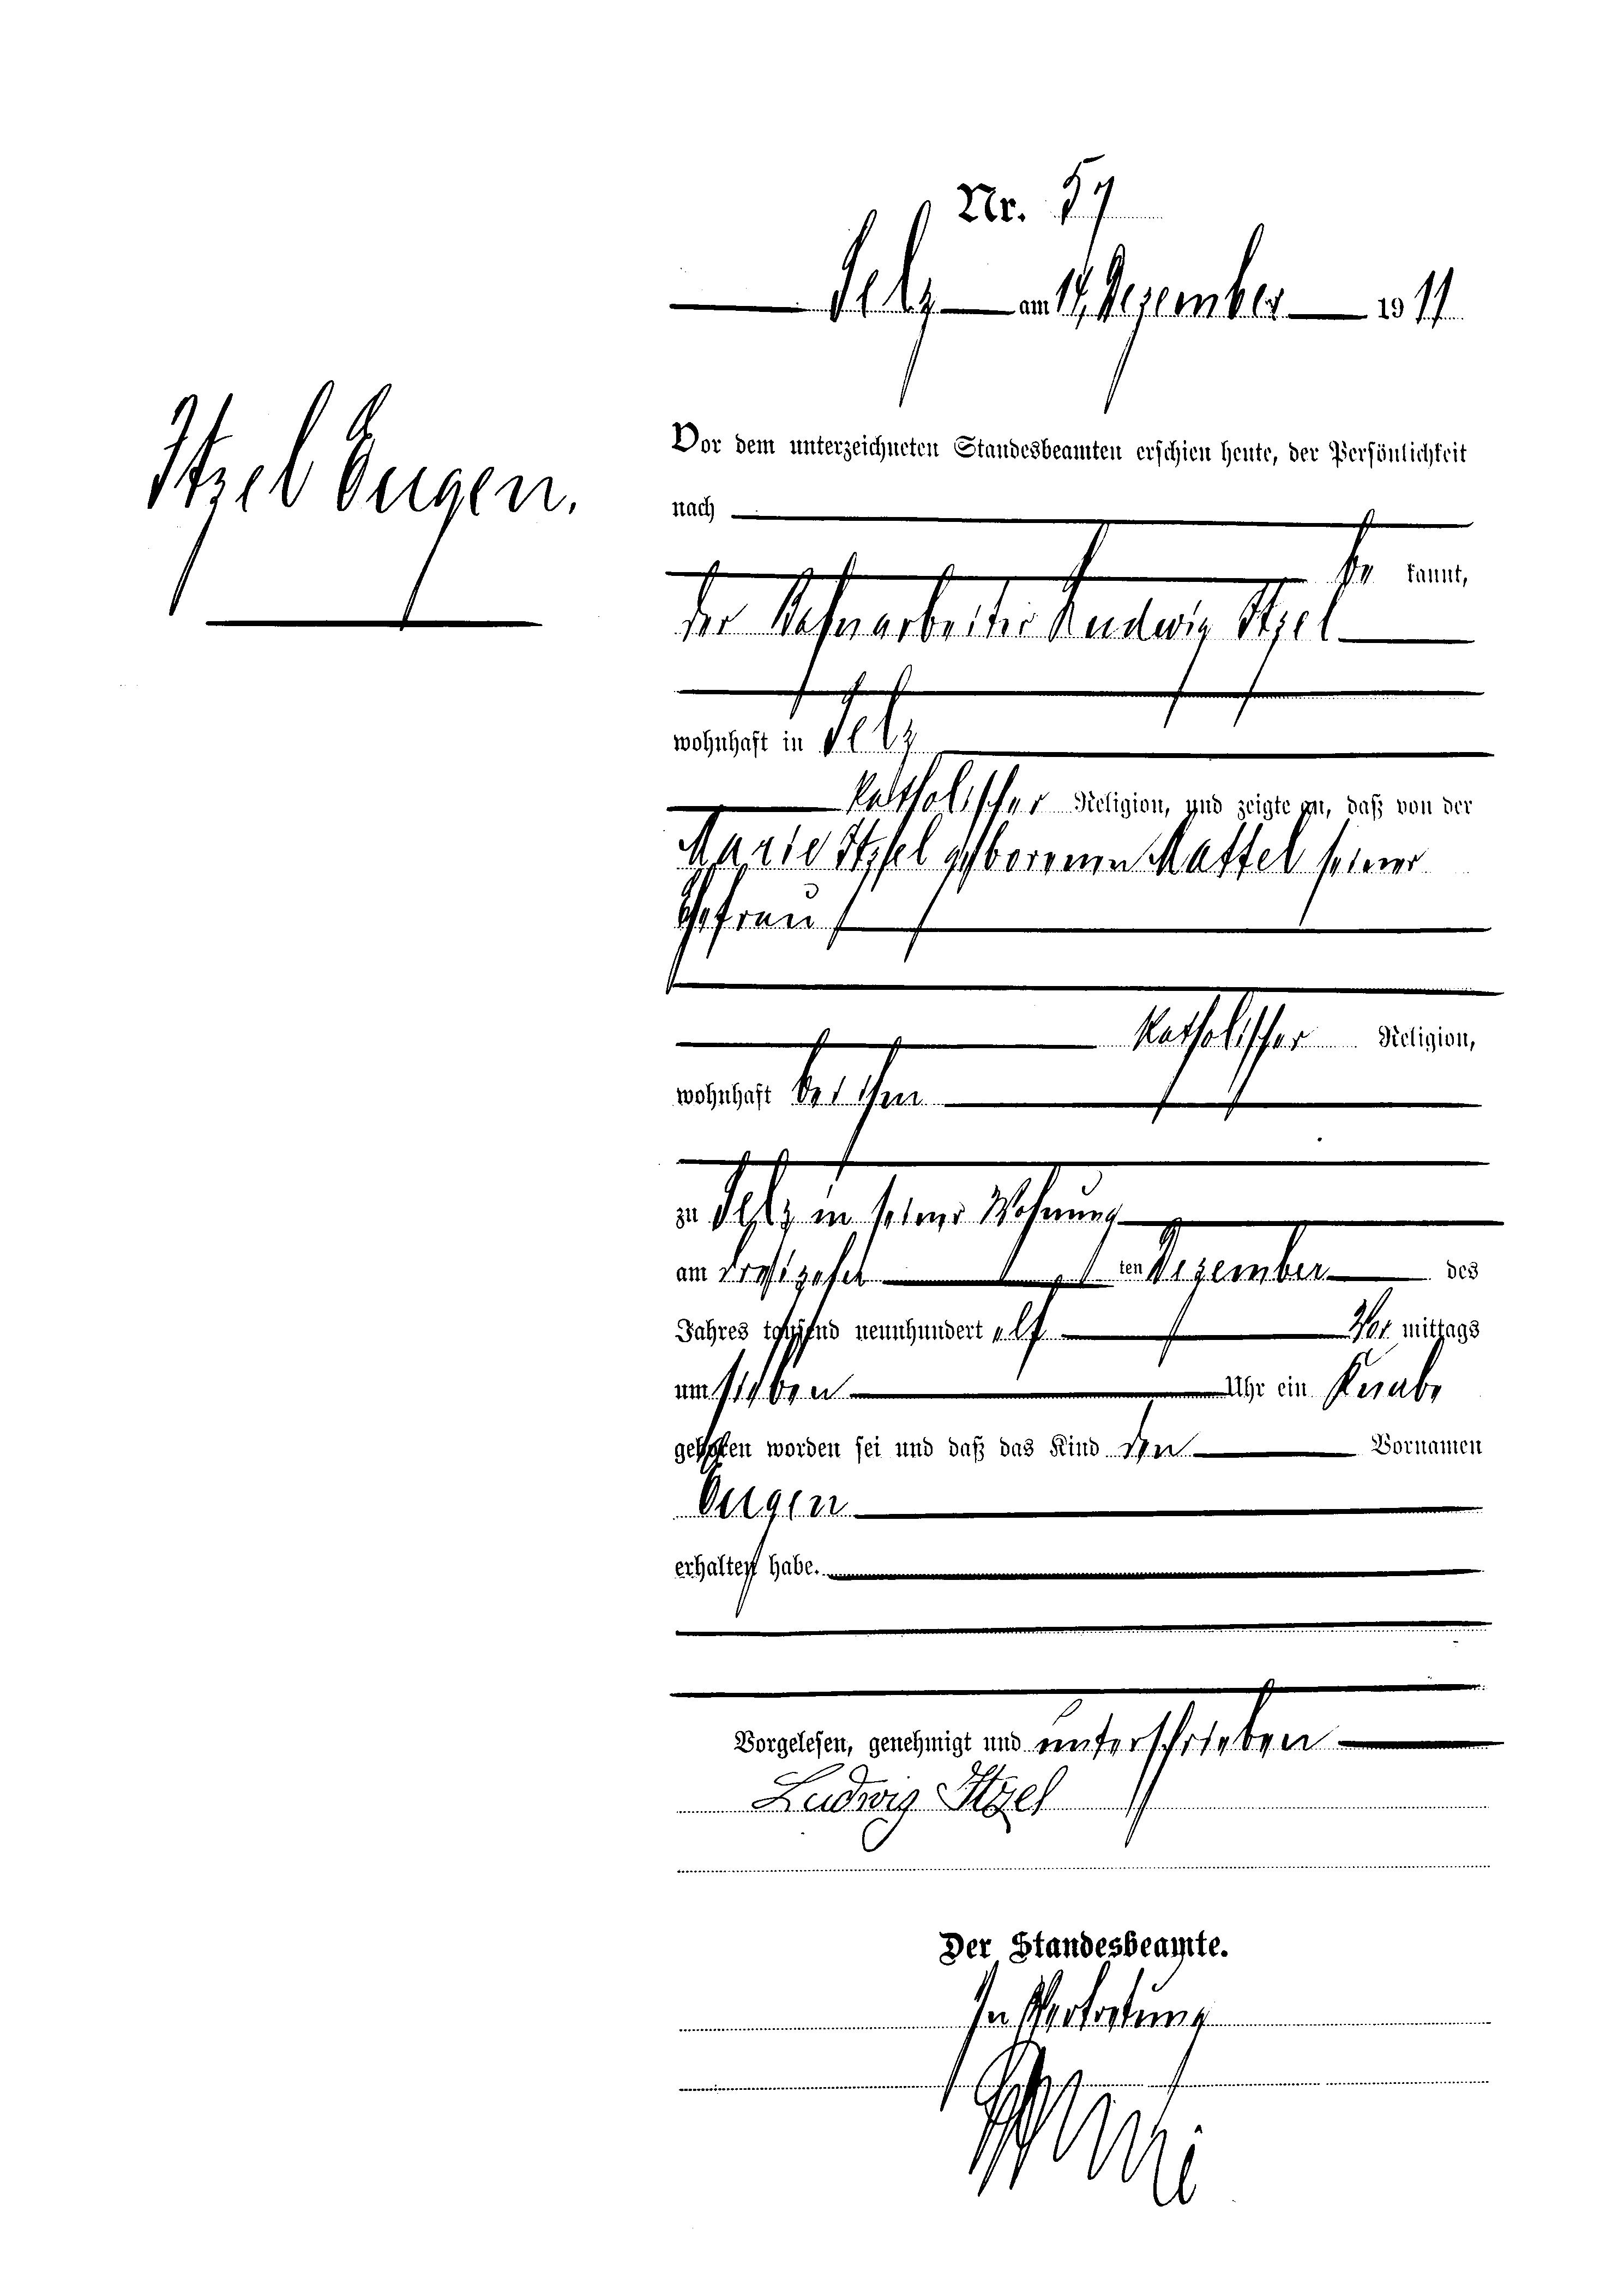 Nr. 57
Selz am 14. Dezember 1911
Itzel Eugen.
Vor dem unterzeichneten Standesbeamten erschien heute, der Persönlichkeit
nach
be kannt,
der Bahnarbeiter Ludwig Itzel
wohnhaft in Selz
katholischer Religion, und zeigte an, daß von der
Marie Itzel geborenen Mattel seiner
Ehefrau
katholischer Religion,
wohnhaft bei ihm
zu Selz in seiner Wohnung
am dreizehn ten Dezember des
Jahres tausend neunhundert elf Vor mittags
um sieben Uhr ein Knabe
geboren worden sei und daß das Kind den Vornamen
Eugen
erhalten habe.
Vorgelesen, genehmigt und unterschrieben
Ludwig Itzel
Der Standesbeamte.
In Vertretung